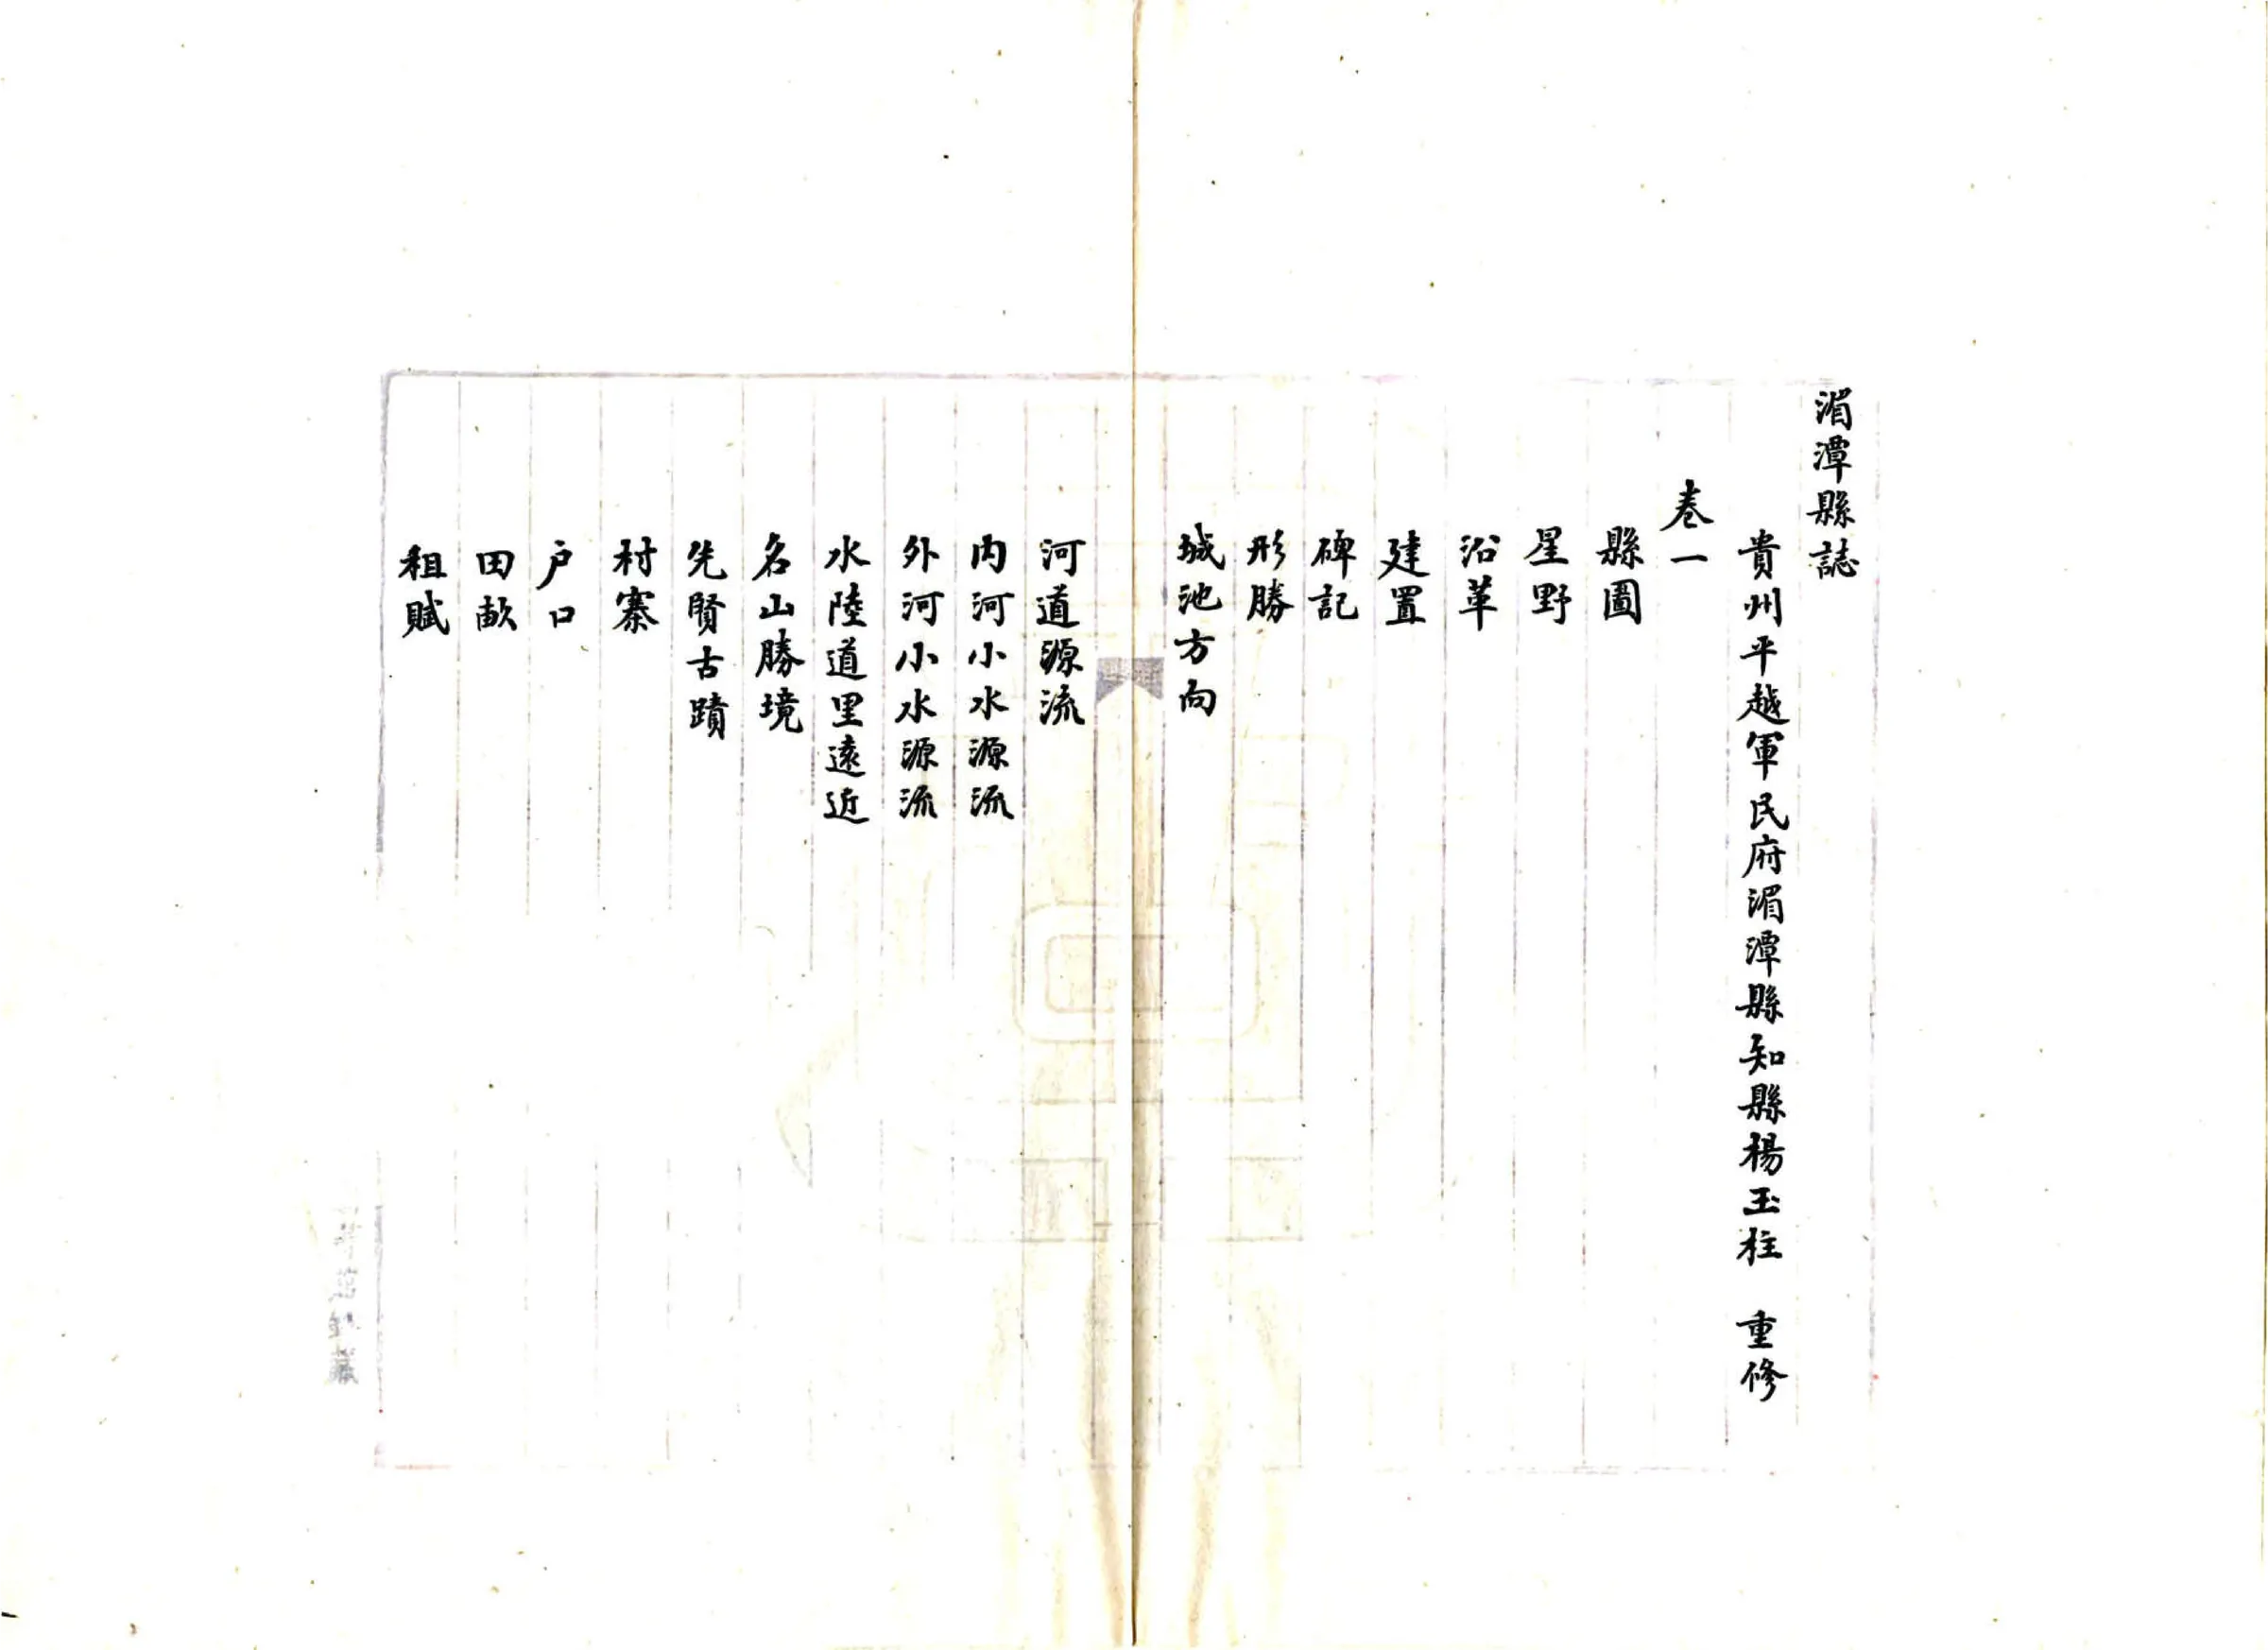 湄潭縣誌
貴州平越軍民府湄潭縣知縣楊玉柱 重修
卷一
縣圖
星野
沿革
建置
碑記
形勝
城池方向
河道源流
內河小水源流
外河小水源流
水陸道里遠近
名山勝境
先賢古蹟
村寨
户口
田畝
租賦